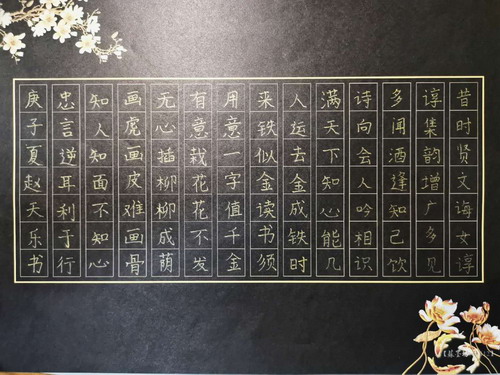 昔时贤文诲女谆
谆集韵增广多见
多闻酒逢知己饮
诗向会人吟相识
满天下知心能几
人运去金成铁时
来铁似金读书须
用意一字值千金
有意栽花花不发
无心插柳柳成荫
画虎画皮难画骨
知人知面不知心
忠言逆耳利于行
庚子夏赵天乐书